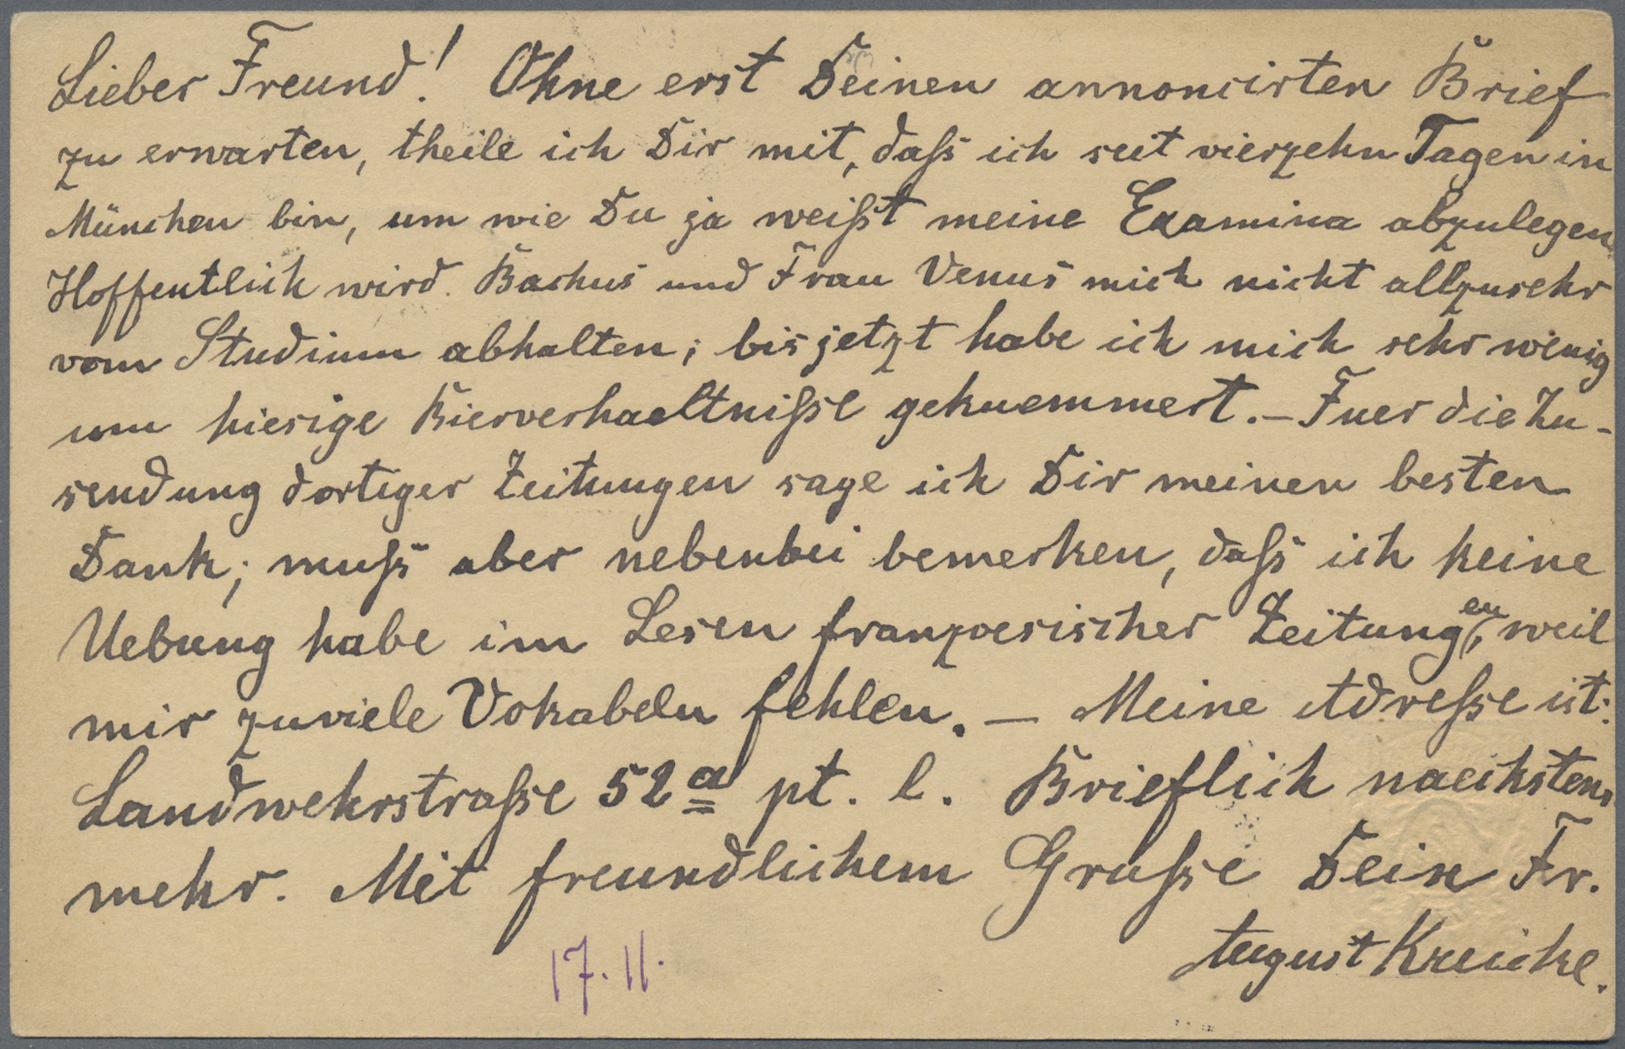 Lieber Freund! Ohne erst Deinen annoncirten Brief
zu erwarten, theile ich Dir mit, daſs ich seit vierzehn Tagen in
München bin, um wie Du ja weiſst meine Examina abzulegen.
Hoffentlich wird Bachus und Frau Venus mich nicht allzusehr
vom Studium abhalten; bis jetzt habe ich mich sehr wenig
um hiesige Bierverhaeltniſse gekuemmert. — Fuer die Zu-
sendung dortiger Zeitungen sage ich Dir meinen besten
Dank; muſs aber nebenbei bemerken, daſs ich keine
Uebung habe im Lesen franzoesischer Zeitungen, weil
mir zuviele Vokabeln fehlen. — Meine Adreſse ist:
Landwehrstraſse 52a pt. l. Brieflich naechstens
mehr. Mit freundlichem Gruſse Dein Fr.
August
17.11.